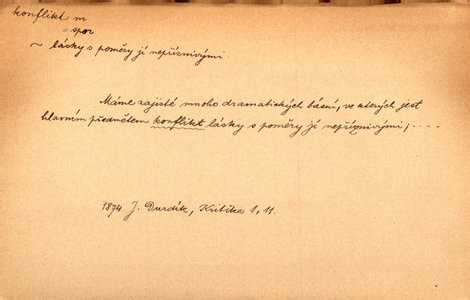 konflikt m
= spor
~ lásky s poměry jí nepříznivými.
Máme zajisté mnoho dramatických básní, ve kterých jest
hlavním předmětem konflikt lásky s poměry jí nepříznivými, . . . .
1874 J. Durdík, Kritika 1, 11.